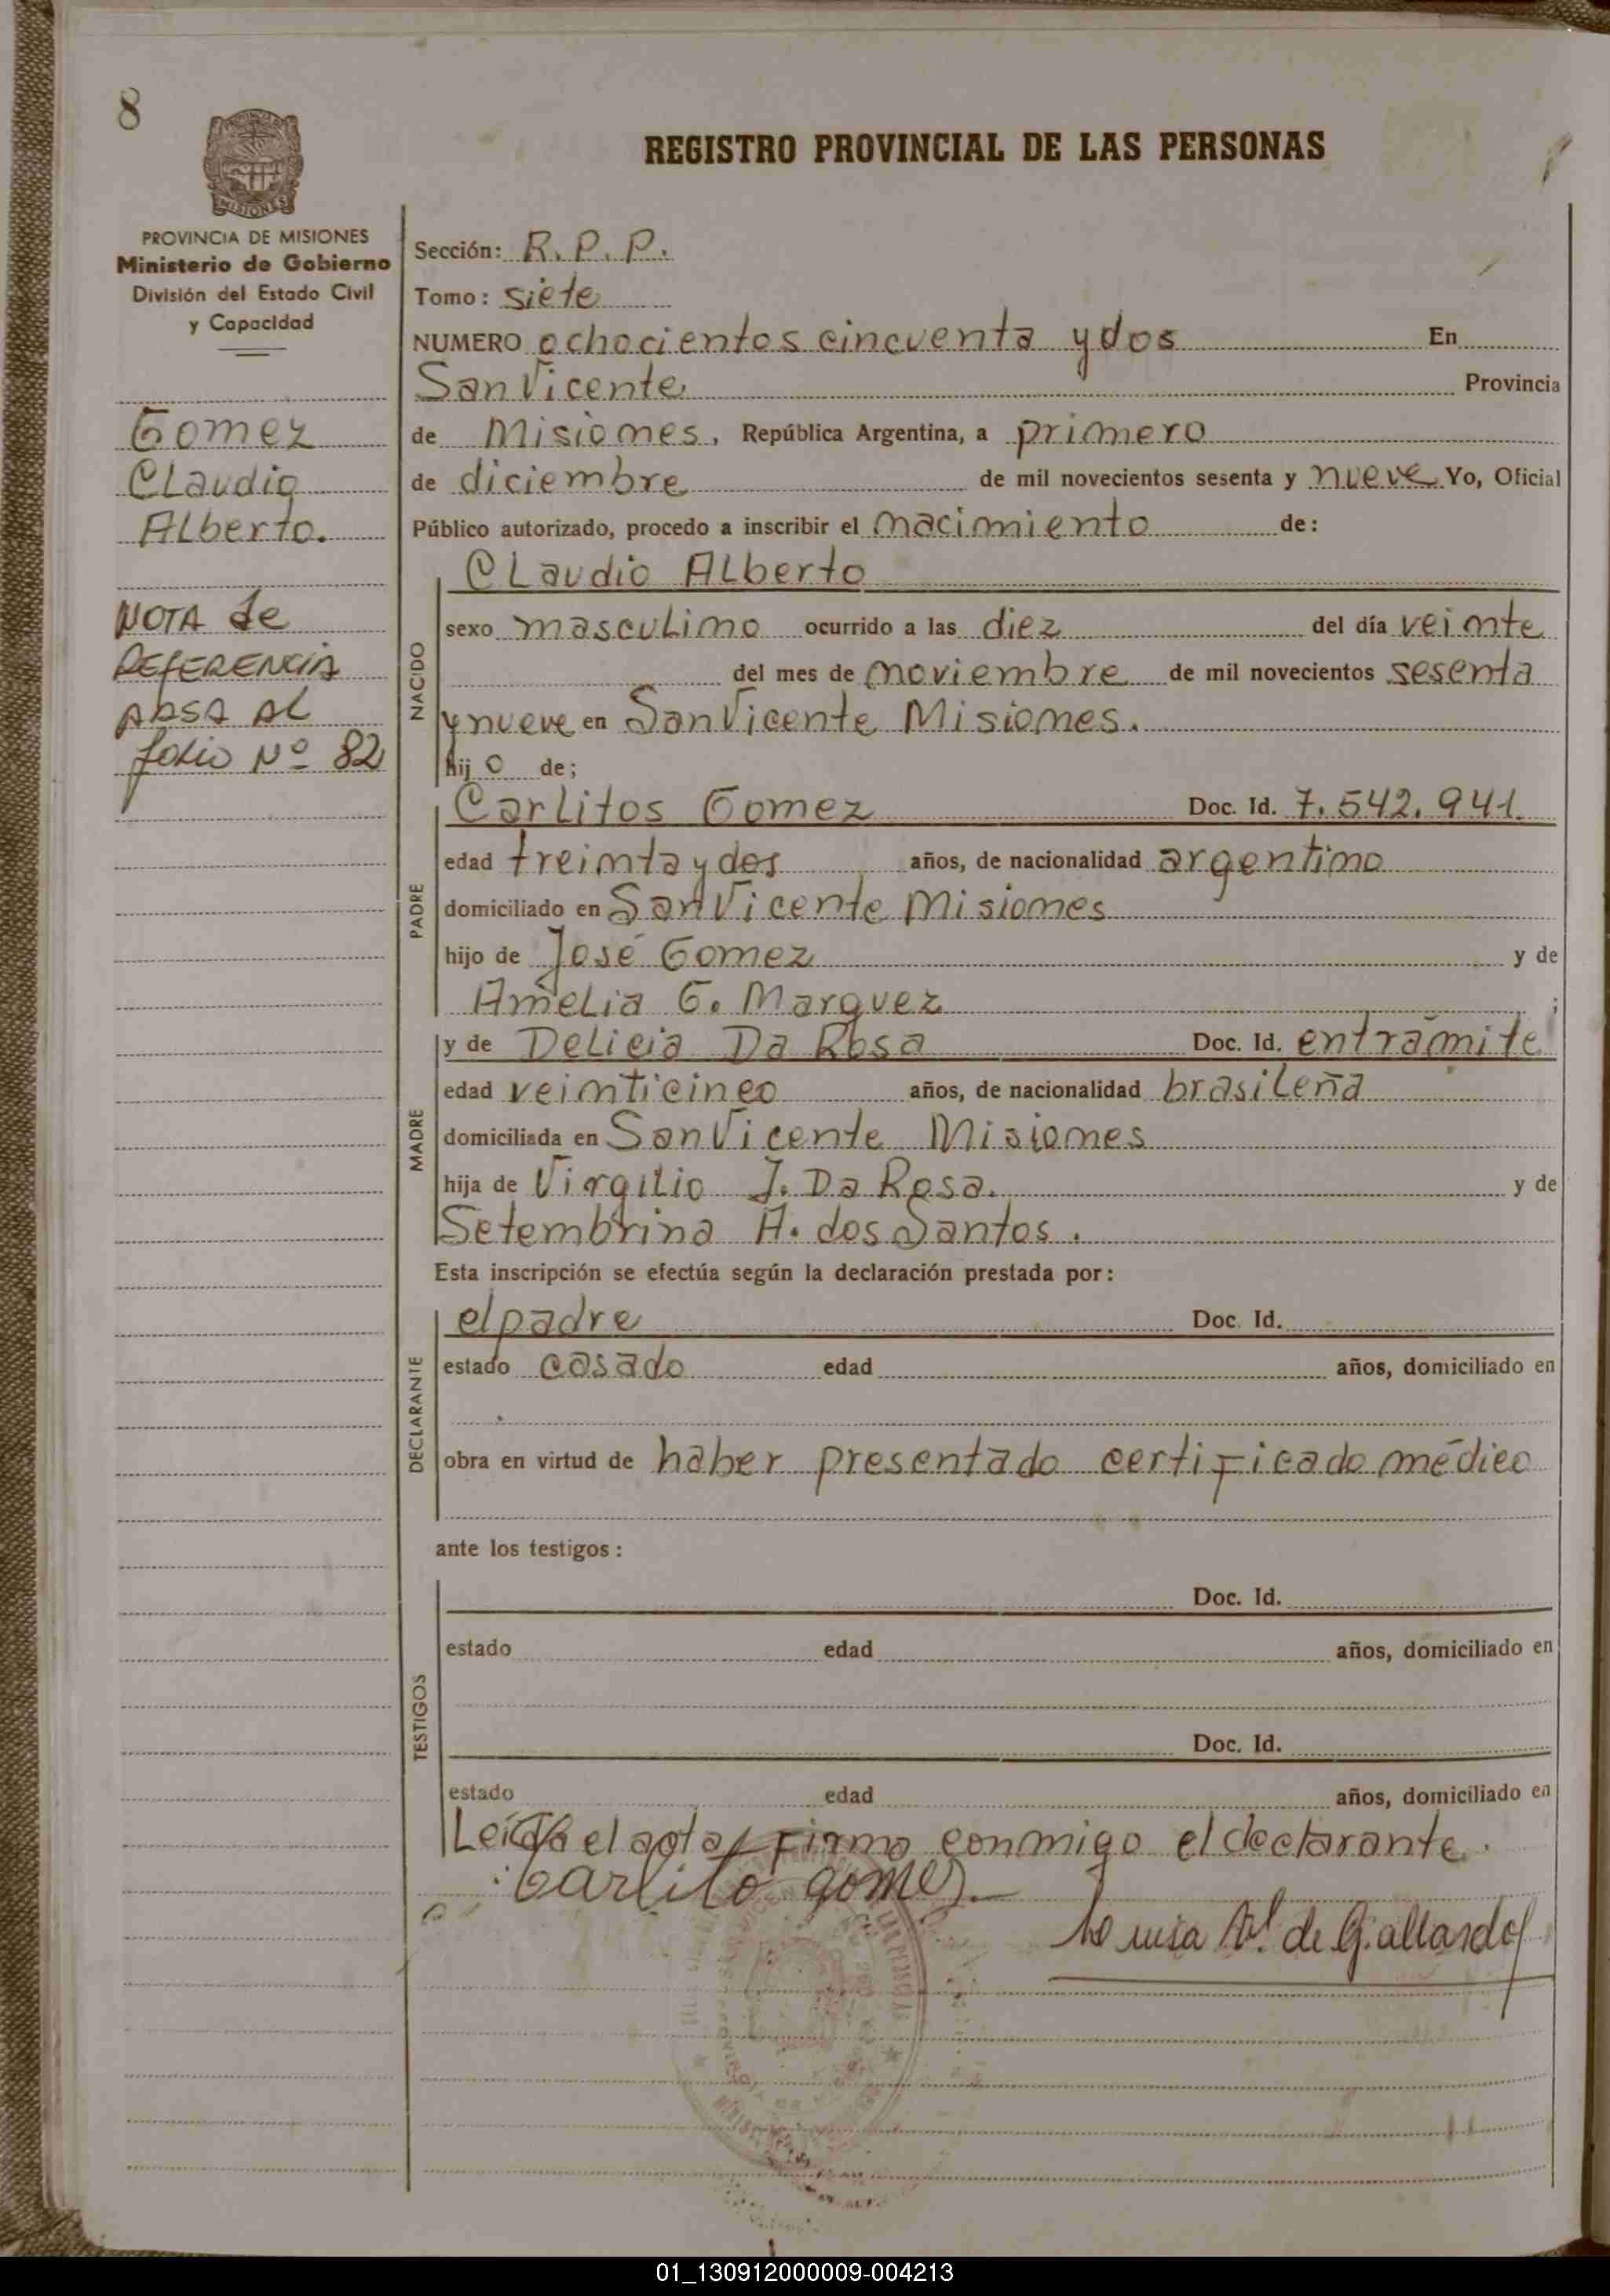 8
REGISTRO PROVINCIAL DE LAS PERSONAS
PROVINCIA DE MISIONES
Ministerio de Gobierno
División del Estado Civil
y Capacidad
Gomez
Claudio
Alberto.
NOTA de
REFERENCIA
PASA AL
folio Nº 82
Sección: R. P. P.
Tomo: siete
NUMERO ochocientos cincuenta y dos En
San Vicente Provincia
de Misiones, República Argentina, a primero
de diciembre de mil novecientos sesenta y nueve Yo, Oficial
Público autorizado, procedo a inscribir el nacimiento de:
NACIDO
Claudio Alberto
sexo masculino ocurrido a las diez del día veinte
del mes de noviembre de mil novecientos sesenta
y nueve en San Vicente Misiones.
hij o de;
PADRE
Carlitos Gomez Doc. Id. 7.542.941
edad treinta y dos años, de nacionalidad argentino
domiciliado en San Vicente Misiones
hijo de José Gomez y de
Amelia G. Marquez ;
MADRE
y de Delicia Da Rosa Doc. Id. en trámite
edad veinticinco años, de nacionalidad brasileña
domiciliada en San Vicente Misiones
hija de Virgilio J. Da Rosa. y de
Setembrina A. dos Santos.
Esta inscripción se efectúa según la declaración prestada por:
DECLARANTE
el padre Doc. Id.
estado casado edad años, domiciliado en
obra en virtud de haber presentado certificado médico
ante los testigos:
TESTIGOS
Doc. Id.
estado edad años, domiciliado en
Doc. Id.
estado edad años, domiciliado en
Leída el acta, firma conmigo el declarante.
Carlito gomez
de Gallardo
01_130912000009-004213